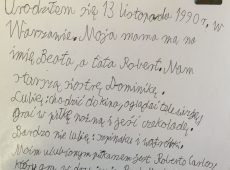 Urodziłem się 13 listopada 1990 r. w
Warszawie. Moja mama ma na
imię Beata, a tata Robert. Mam
starszą siostrę Dominikę.
Lubię: chodzić do kina, oglądać telewizję,
grać w piłkę nożną i jeść czekoladę.
Bardzo nie lubię: szpinaku i
Moim ulubionym piłkarzem jest Roberto Carlos,
który gra w